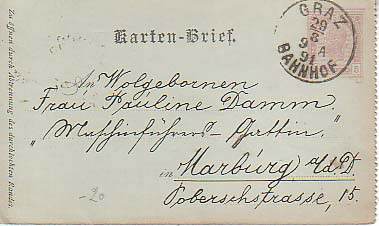 Zu öffnen durch Abtrennung des durchlochten Randes.
Karten-Brief.
GRAZ
29
3
9 4
91
BAHNHOF
5
An Wolgebornen
Frau Pauline Damm.
"Maschinführers-Gattin."
in Marburg a/d.D.
Poberschstrasse, 15.
-20